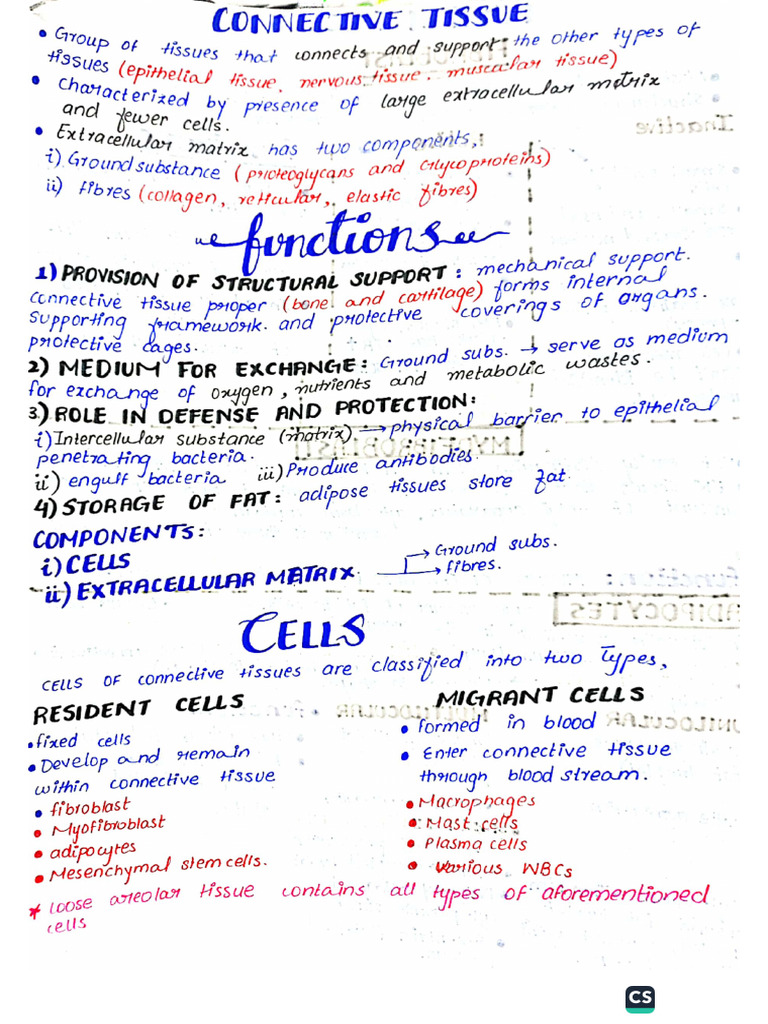 CONNECTIVE TISSUE
• Group of tissues that connects and support the other types of
tissues (epithelial tissue, nervous tissue, muscular tissue)
• Characterized by presence of large extracellular matrix
and fewer cells.
• Extracellular matrix has two components,
i) Ground substance (proteoglycans and Glycoproteins)
ii) fibres (collagen, reticular, elastic fibres)
functions
1) PROVISION OF STRUCTURAL SUPPORT: mechanical support.
connective tissue proper (bone and cartilage) forms internal
supporting framework and protective coverings of organs.
protective cages.
2) MEDIUM FOR EXCHANGE: Ground subs. → serve as medium
for exchange of oxygen, nutrients and metabolic wastes.
3) ROLE IN DEFENSE AND PROTECTION:
i) Intercellular substance (matrix) → physical barrier to epithelial
penetrating bacteria.
ii) engulf bacteria iii) Produce antibodies
4) STORAGE OF FAT: adipose tissues store fat
COMPONENTS:
i) CELLS
ii) EXTRACELLULAR MATRIX
→ Ground subs.
→ fibres.
CELLS
CELLS OF connective tissues are classified into two Types,
RESIDENT CELLS
• fixed cells
• Develop and remain
within connective tissue
• fibroblast
• Myofibroblast
• adipocytes
• Mesenchymal stem cells.
MIGRANT CELLS
• formed in blood
• Enter connective tissue
through blood stream.
• Macrophages
• Mast cells
• Plasma cells
• various WBCs
* Loose areolar tissue contains all types of aforementioned
cells
CS